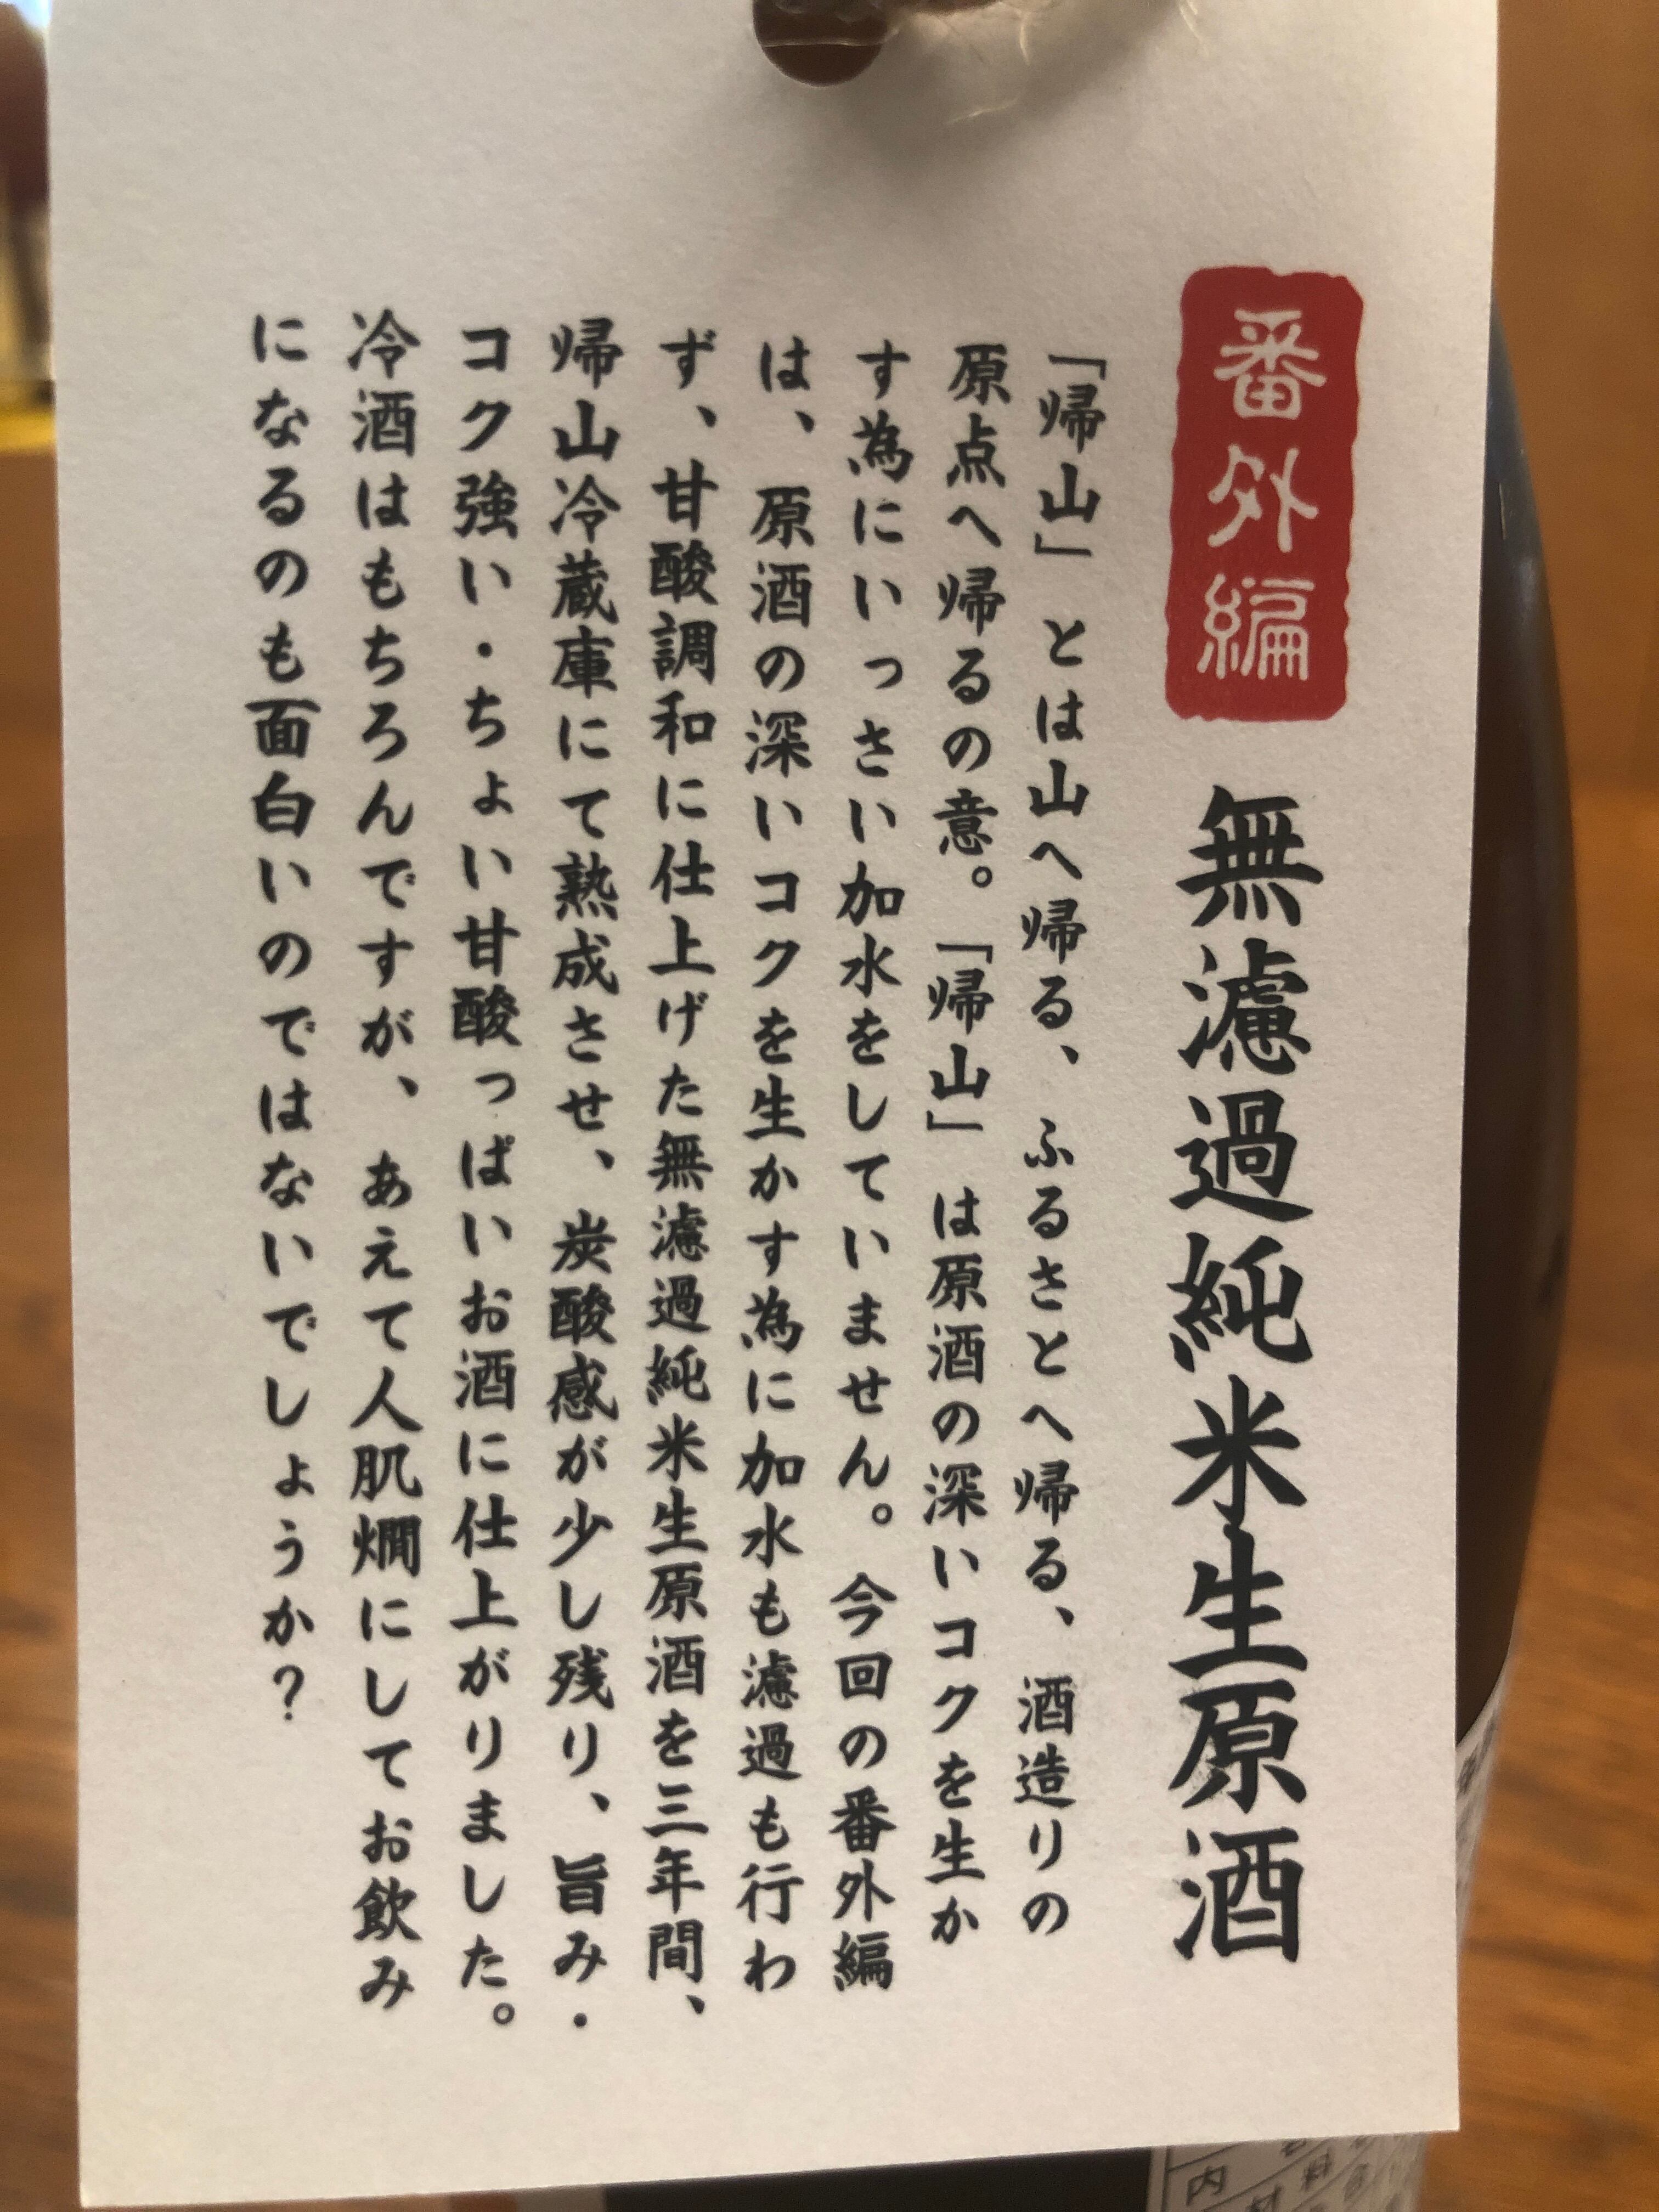 番外編
無濾過純米生原酒
「帰山」とは山へ帰る、ふるさとへ帰る、酒造りの
原点へ帰るの意。「帰山」は原酒の深いコクを生か
す為にいっさい加水をしていません。今回の番外編
は、原酒の深いコクを生かす為に加水も濾過も行わ
ず、甘酸調和に仕上げた無濾過純米生原酒を三年間、
帰山冷蔵庫にて熟成させ、炭酸感が少し残り、旨み・
コク強い・ちょい甘酸っぱいお酒に仕上がりました。
冷酒はもちろんですが、あえて人肌燗にしてお飲み
になるのも面白いのではないでしょうか？